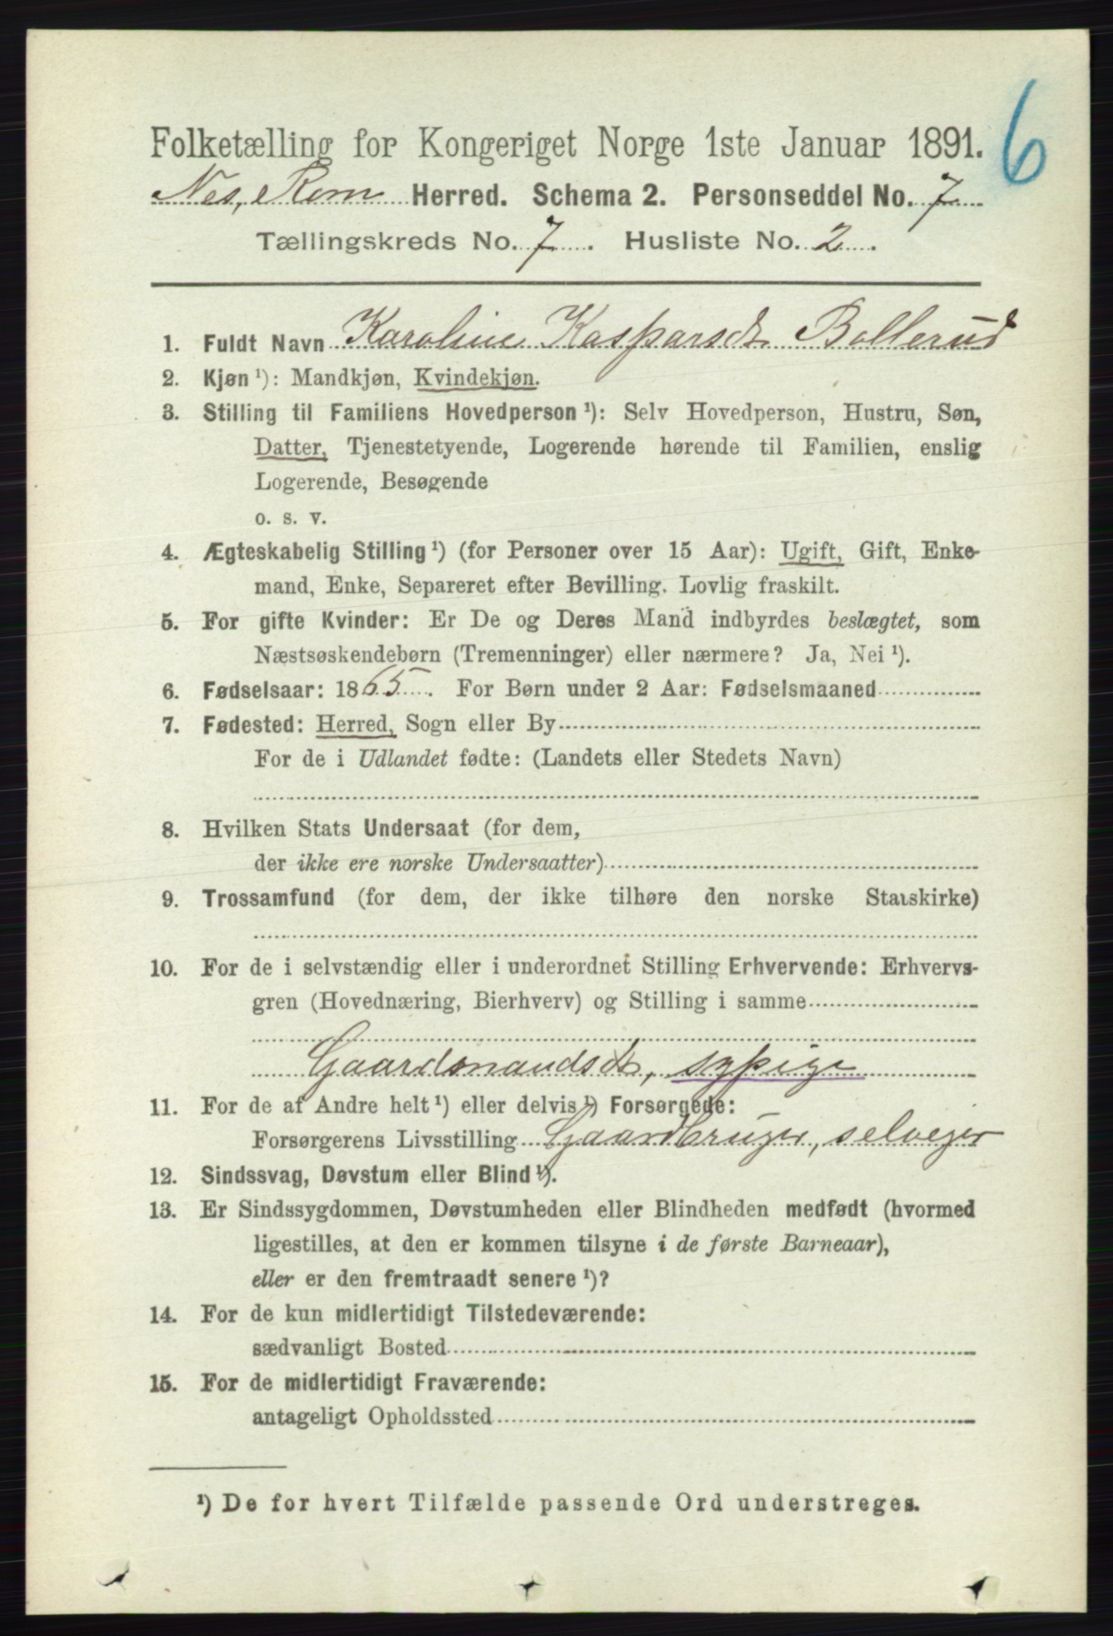 6
Folketælling for Kongeriget Norge 1ste Januar 1891.
Nes, Rom Herred. Schema 2. Personseddel No. 7
Tællingskreds No. 7. Husliste No. 2.
1. Fuldt Navn Karoline Kasparsdt. Bollerud
2. Kjøn ¹): Mandkjøn, Kvindekjøn.
3. Stilling til Familiens Hovedperson ¹): Selv Hovedperson, Hustru, Søn,
Datter, Tjenestetyende, Logerende hørende til Familien, enslig
Logerende, Besøgende
o. s. v.
4. Ægteskabelig Stilling ¹) (for Personer over 15 Aar): Ugift, Gift, Enke-
mand, Enke, Separeret efter Bevilling. Lovlig fraskilt.
5. For gifte Kvinder: Er De og Deres Mand indbyrdes beslægtet, som
Næstsøskendebørn (Tremenninger) eller nærmere? Ja, Nei ¹).
6. Fødselsaar: 1865. For Børn under 2 Aar: Fødselsmaaned
7. Fødested: Herred, Sogn eller By
For de i Udlandet fødte: (Landets eller Stedets Navn)
8. Hvilken Stats Undersaat (for dem,
der ikke ere norske Undersaatter)
9. Trossamfund (for dem, der ikke tilhøre den norske Statskirke)
10. For de i selvstændig eller i underordnet Stilling Erhvervende: Erhvervs-
gren (Hovednæring, Bierhverv) og Stilling i samme
Gaardmandsdt, sypige
11. For de af Andre helt ¹) eller delvis ¹) Forsørgede:
Forsørgerens Livsstilling Gaardbruger, selveier
12. Sindssvag, Døvstum eller Blind ¹).
13. Er Sindssygdommen, Døvstumheden eller Blindheden medfødt (hvormed
ligestilles, at den er kommen tilsyne i de første Barneaar),
eller er den fremtraadt senere ¹)?
14. For de kun midlertidigt Tilstedeværende:
sædvanligt Bosted
15. For de midlertidigt Fraværende:
antageligt Opholdssted
¹) De for hvert Tilfælde passende Ord understreges.